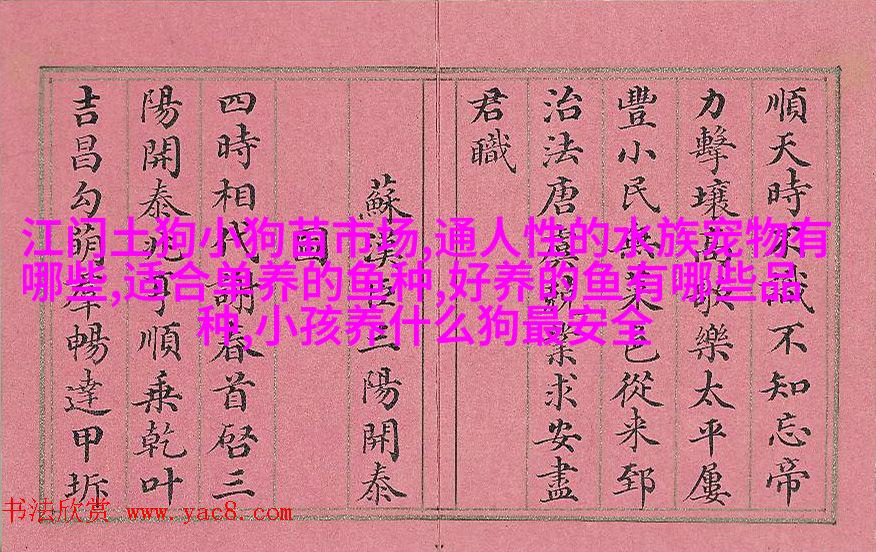 江门土狗小狗苗市场,通人性的水族宠物有
哪些,适合单养的鱼种,好养的鱼有哪些品
种,小孩养什么狗最安全
順天時不識不知忘帝
力擊壤高歌樂太平屢
豐小民邑從來郅
治法唐虞求安盡
君職
蘇漢臣三陽開泰
圖
四時相代謝春首啓三
陽開泰兆可順乘乾叶
吉昌勾萌暢達甲坼
书法欣赏 www.yac8.com